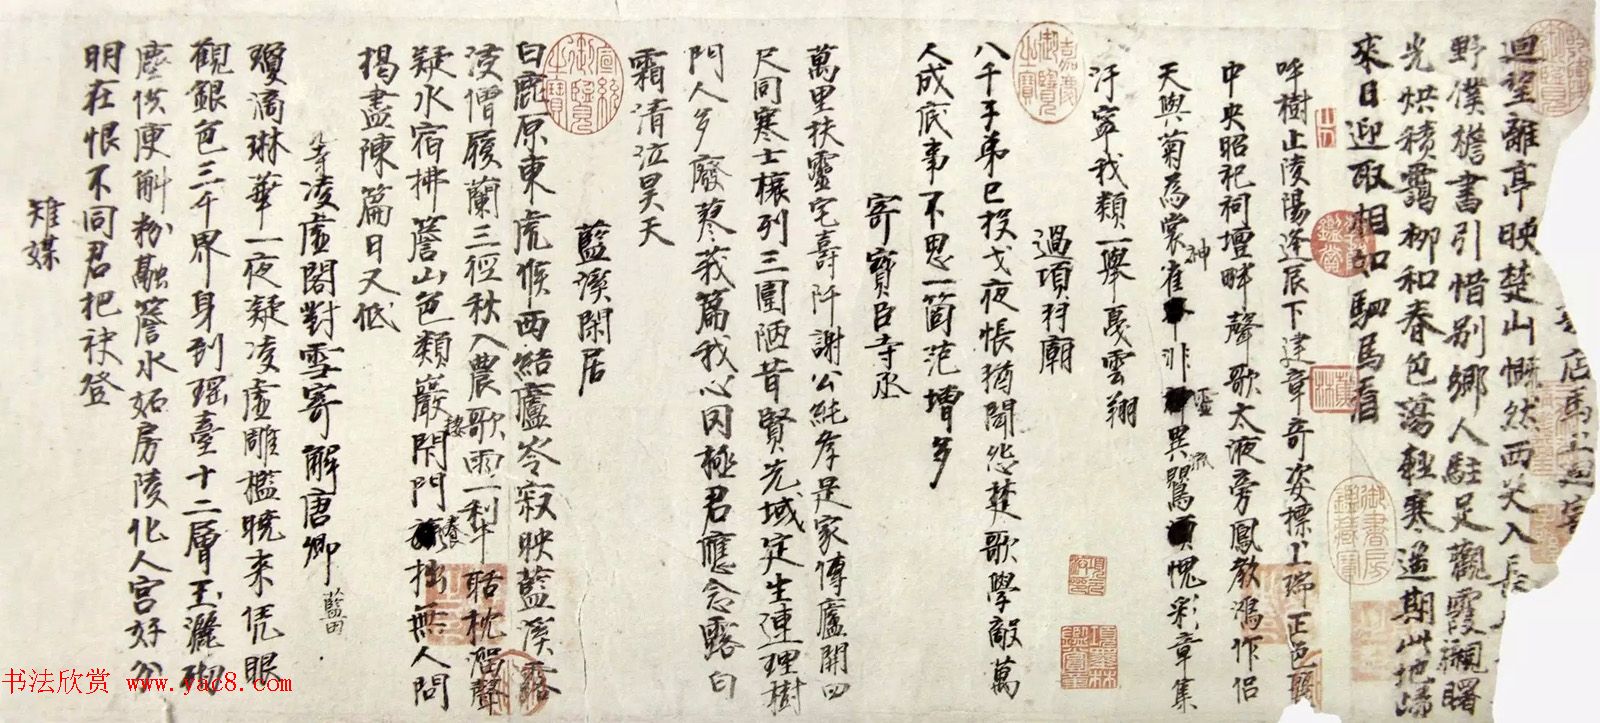 店馬上迴寄
迴望離亭映楚山慨然西笑入長
野濮襜書引惜別鄉人駐足觀霞襯曙
光烘積靄柳和春色蕩輕寒遥期此地歸
來日迎取相如駟馬看
呼樹止陵陽逢辰下建章奇姿標上瑞正色
中央昭祀祠壇畔聲歌太液旁鳳教鴻作侶
天與菊為裳雀神非靈異鷖流愧彩章集
汙寧我類一舉戛雲翔
過項羽廟
八千子弟已投戈夜帳猶聞怨楚歌學敵萬
人成底事不思一箇范增多
寄寶臣寺丞
萬里扶靈宅壽阡謝公純孝是家傳廬開四
尺同寒士櫬列三圍陋昔賢先域定生連理樹
門人多廢蓼莪篇我心罔極君應念露白
霜清泣昊天
藍溪閑居
白鹿原東虎候西結廬岑寂映藍溪露
浸僧履蘭三徑秋入農歌雨一利牛聒枕溜聲
疑水宿拂簷山色類巖棲閑門春拙無人問
揭盡陳篇日又低
寺凌虛閣對雪寄解唐卿 藍田
瓊滴琳華一夜疑凌虛雕檻曉來凭眼
觀銀色三千界身到瑶臺十二層玉灑砌
塵供庾斛粉融簷水妬房陵化人宮好分
明在恨不同君把袂登
雉媒
嘉慶御覽之寶
宣統御覽之寶
御書房鑑藏寶
項墨林鑑賞章
書法欣賞 www.yac8.com